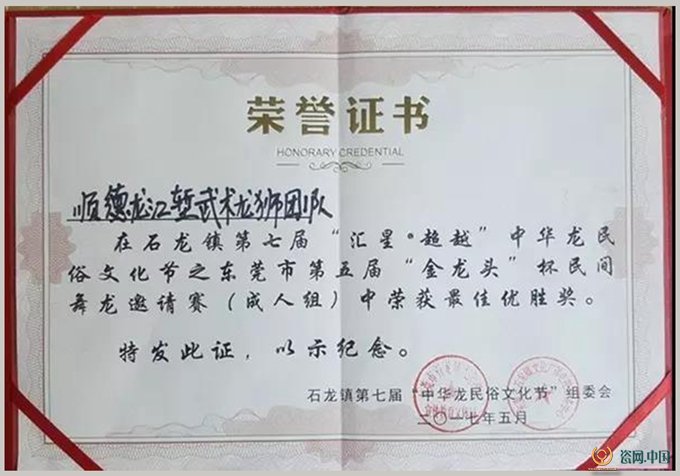 荣誉证书
HONORARY CREDENTIAL
顺德龙江堑武术龙狮团队
在石龙镇第七届“汇星·超越”中华龙民
俗文化节之东莞市第五届“金龙头”杯民间
舞龙邀请赛(成人组)中荣获最佳优胜奖。
特发此证，以示纪念。
石龙镇第七届“中华龙民俗文化节”组委会
二〇一七年五月
瓷网.中国